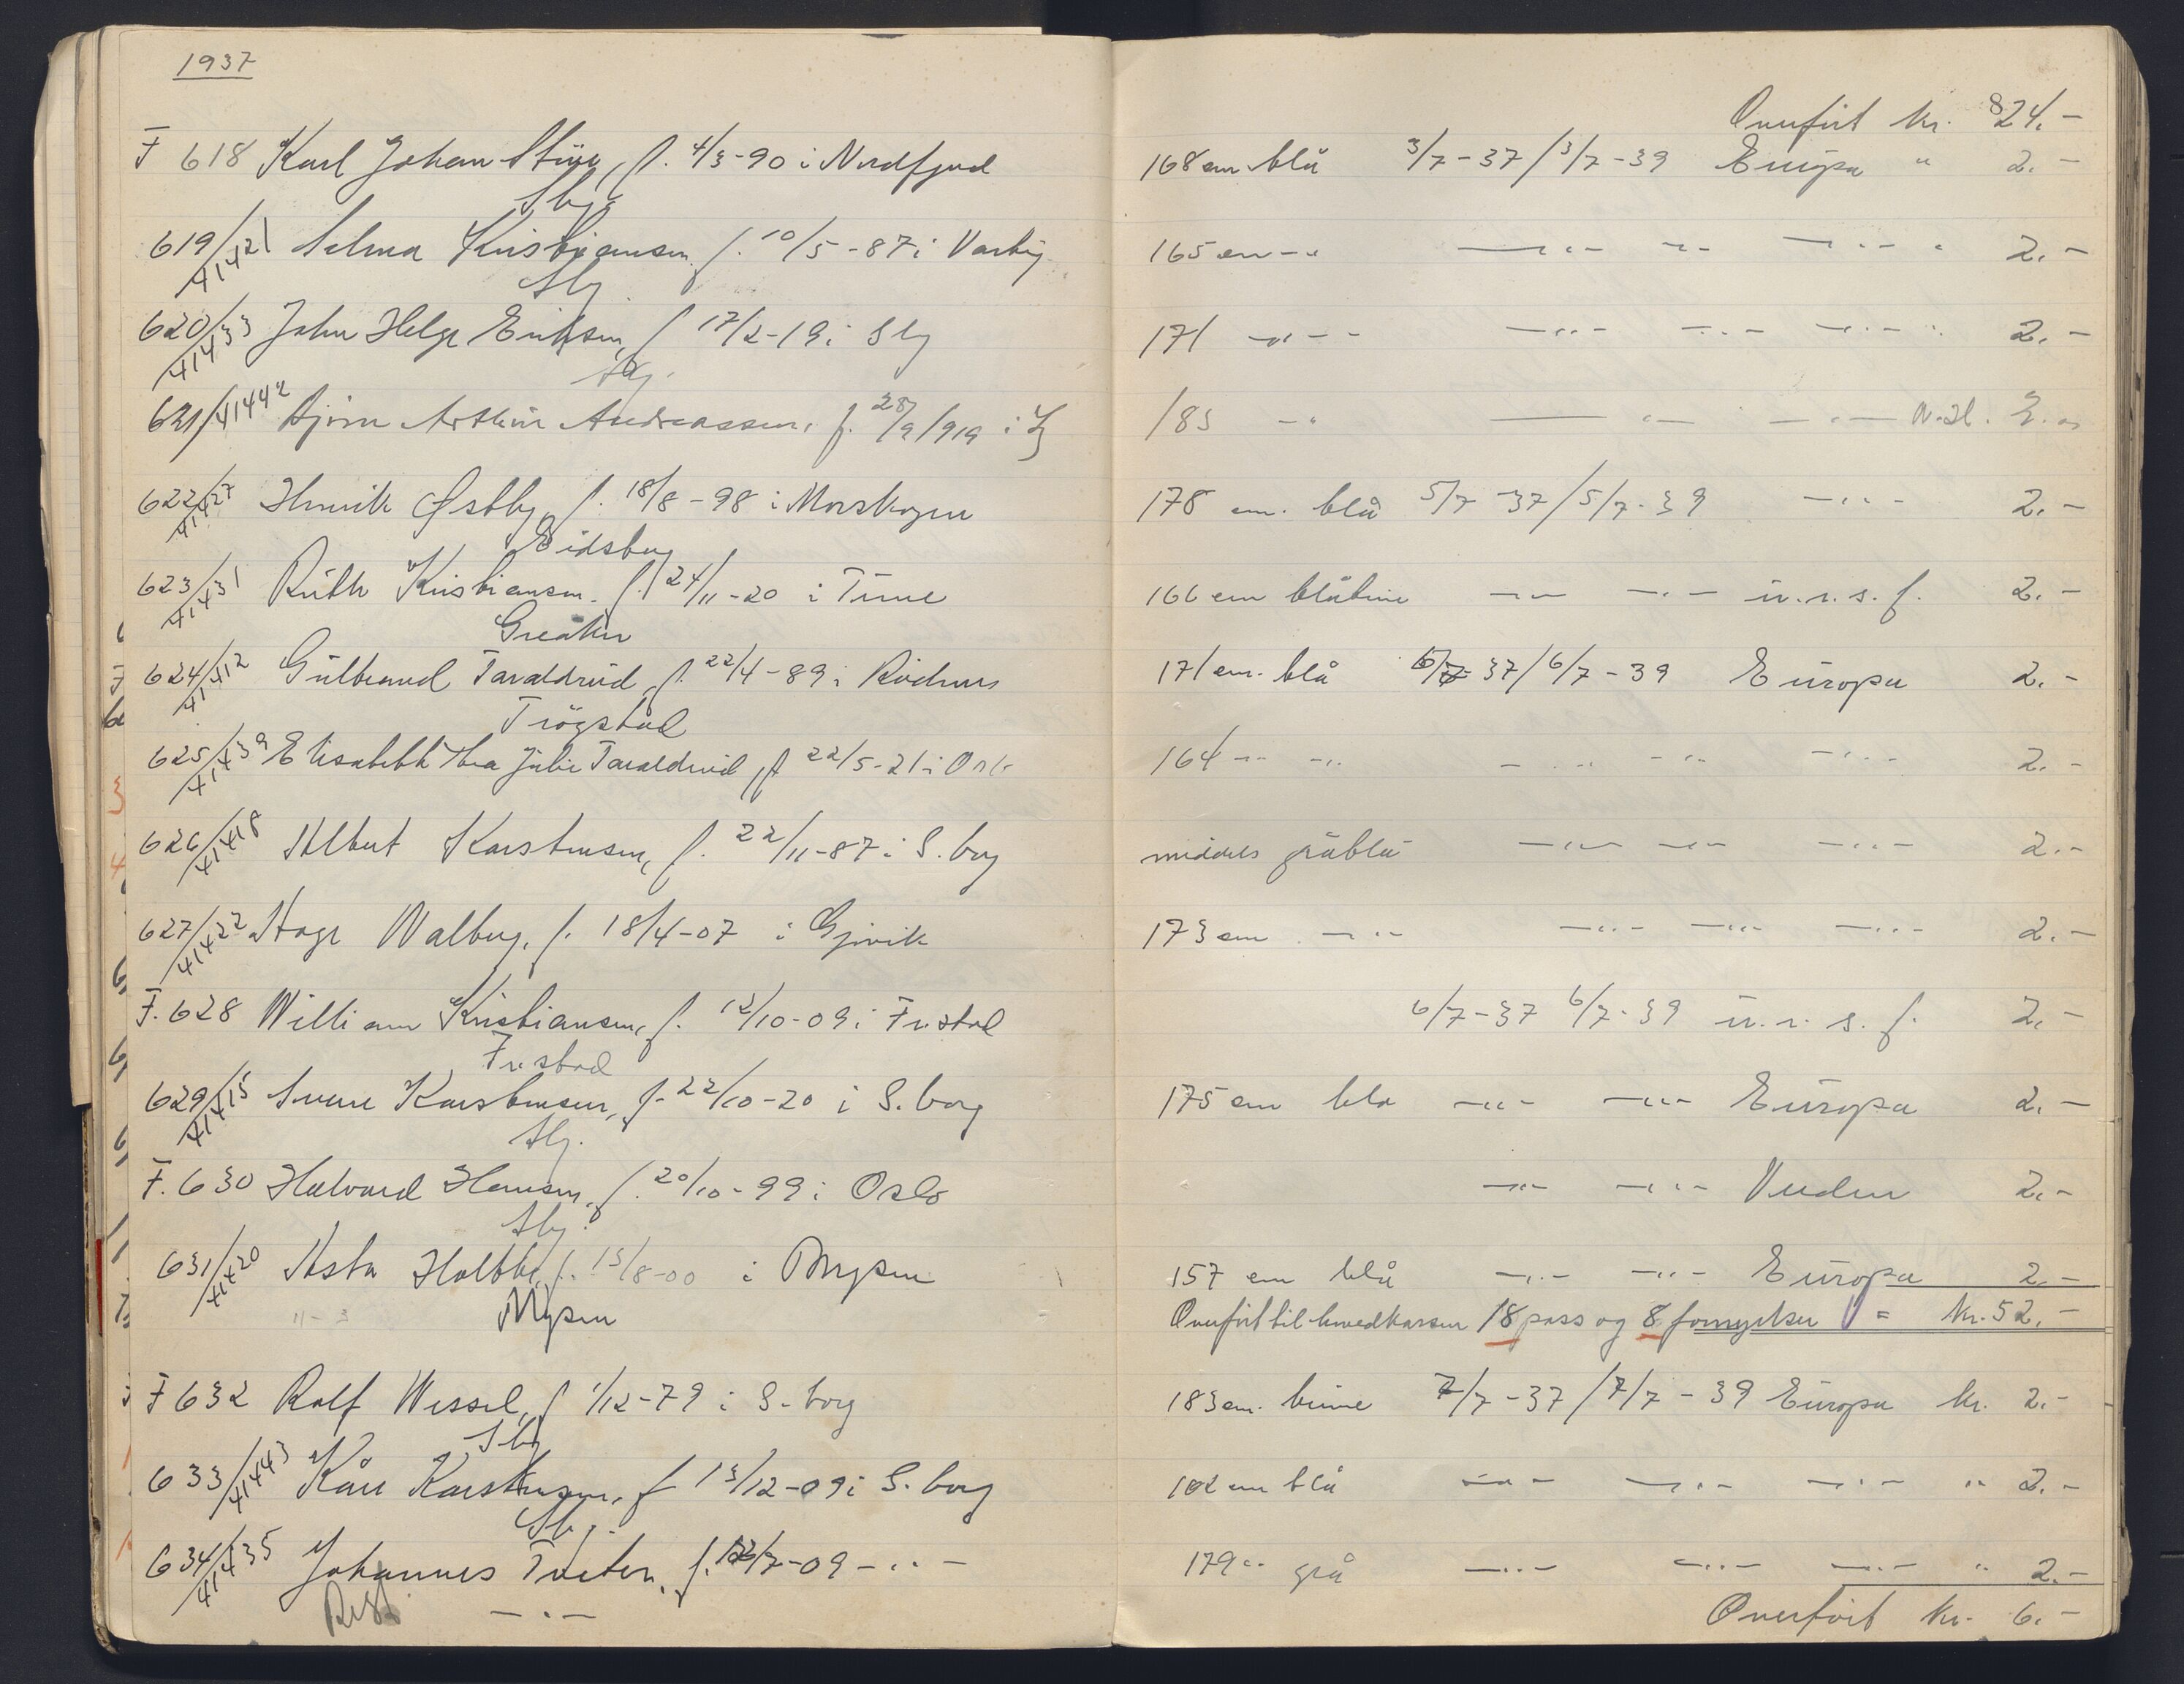 1937
Overført kr. 824.-
F 618 Karl Johan Støye, f. 4/3-90 i Nordfjord 168 cm blå 3/7-37/3/7-39 Europa " 2.-
Sbg.
619/41421 Selma Kristiansen f. 10/5-87 i Varteig 165 cm -"- -"- -"- -"- " 2.-
Sbg.
620/41433 John Helge Eriksen, f 17/2-19 i Sbg 171 -"- -"- -"- -"- " 2.-
Sbg.
621/41442 Bjørn Arthur Andreassen, f. 28/9 1919 i 183 -"- -"- -"-
622/41427 Henrik Østby, f. 18/8-98 i Morskogen 178 cm. blå 5/7-37/5/7-39 -"- 2.-
Eidsberg
623/41431 Ruth Kristiansen. f. 24/11-20 i Tune 166 cm blåbrune -"- -"- u.r.s.f. 2.-
Greåker
624/41412 Gulbrand Taraldrud, f. 22/4-89 i Rødenes 171 cm. blå 6/7-37/6/7-39 Europa 2.-
Trøgstad
625/41439 Elisabeth Thea Julie Taraldrud, f 22/5-21 i Oslo 164 -"- -"- -"- -"- -"- 2.-
626/41418 Albert Karstensen, f. 22/11-87 i S.borg middels gråblå -"- -"- -"- 2.-
627/41422 Aage Walberg, f. 18/4-07 i Gjøvik 173 cm -"- -"- -"- -"- 2.-
F. 628 William Kristiansen, f. 12/10-09 i Fr.stad 6/7-37 6/7-39 u.r.s.f. 2.-
Fr.stad
629/41415 Sverre Karstensen, f. 22/10-20 i S.borg 175 cm blå -"- -"- Europa 2.-
Sbg.
F. 630 Halvard Hansen, f. 20/10-99 i Oslo -"- -"- Verden 2.-
Sbg.
631/41420 Asta Holtbe, f. 15/8-00 i Mysen 157 cm blå -"- -"- Europa 2.-
Mysen Overført til hovedkassen 18 pass og 8 fornyelser = kr. 52.-
F 632 Rolf Wessel, f 1/12-79 i S.borg 183 cm. brune 7/7-37/7/7-39 Europa kr. 2.-
Sbg
633/41443 Kåre Karstensen, f 13/12-09 i S.borg 182 cm blå -"- -"- -"- " 2.-
Sbg.
634/41435 Johannes Tveter, f. /7-09 -"- 179 " grå -"- -"- -"- " 2.-
-"-
Overført kr. 6.-